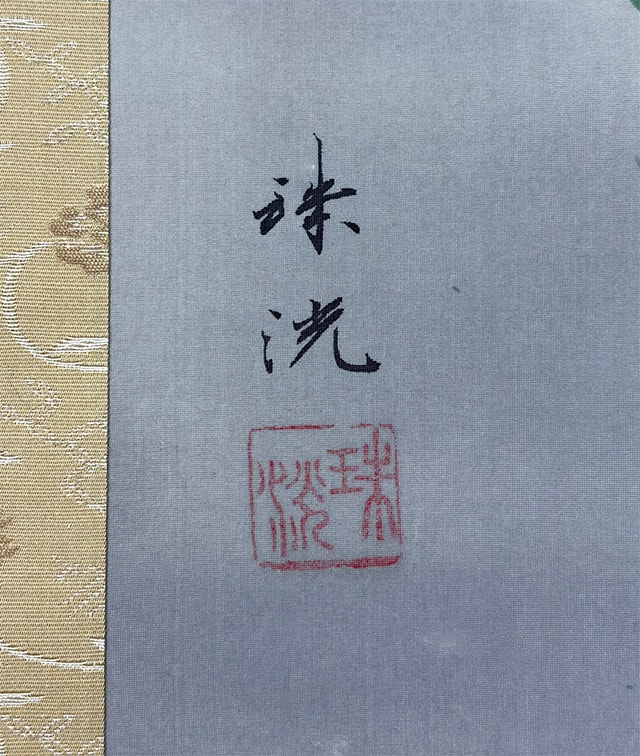 珠洸
珠洸